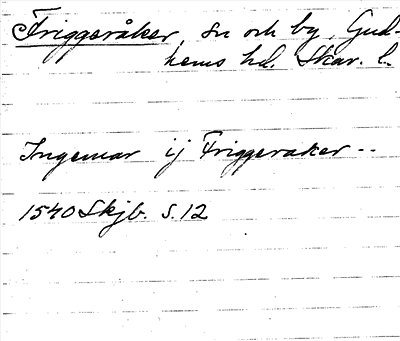 Friggeråker, sn och by, Gud-
hems hd. Skar. l.
Ingemar ij Friggeraker --
1540 Skjb. S. 12